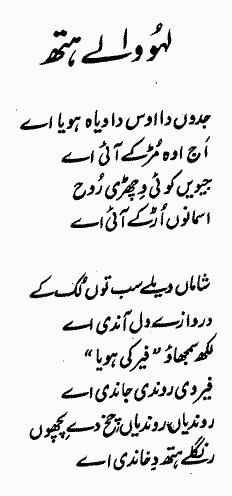 لہُو والے ہتھ
جدوں دا اوس دا ویاہ ہویا اے
اَج اوہ مُڑ کے آئی اے
جیویں کوئی وِچھڑی رُوح
اسمانوں اُڑ کے آئی اے
شاماں ویلے سب توں لُک کے
دروازے ول آندی اے
لکھ سمجھاؤ "فیر کی ہویا"
فیر وی روندی جاندی اے
روندیاں روندیاں چیخ دے پِچھوں
رنگلے ہتھ دِخاندی اے